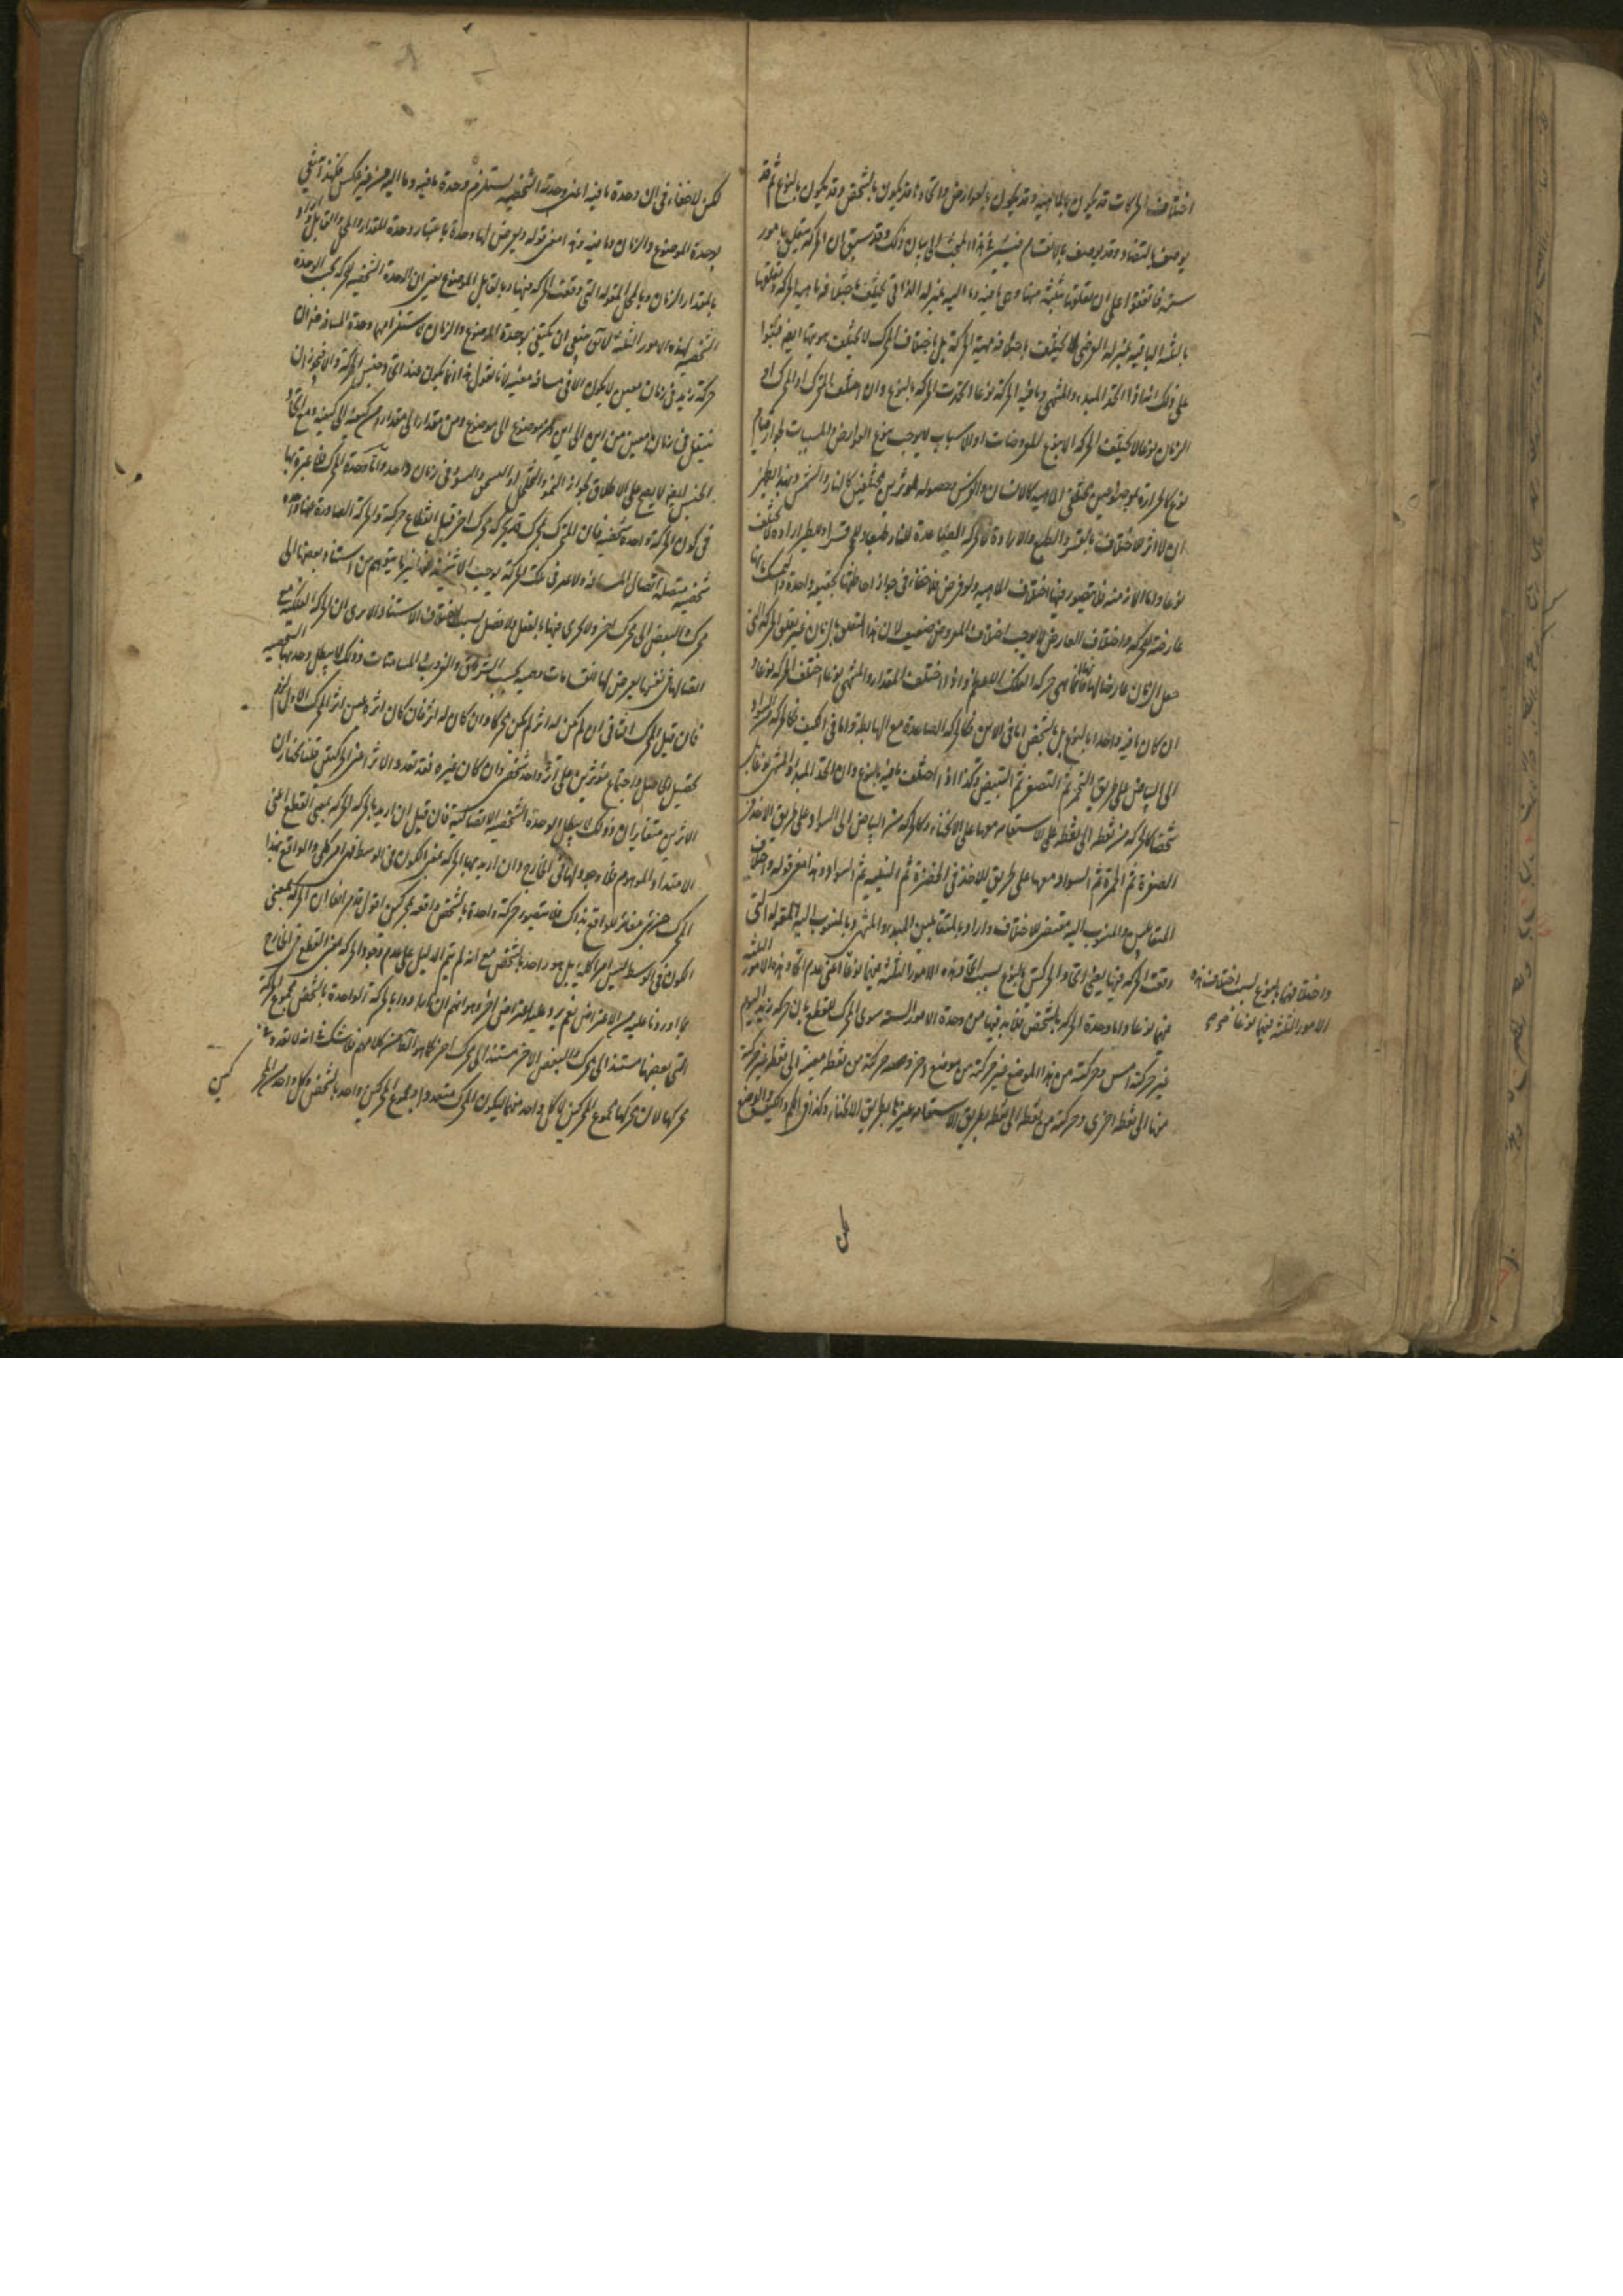 اختلاف الحركات قد يكون بالماهية وقد يكون بالعوارض واتحادها قد يكون بالشخص وقد يكون بالنوع ثم قد
يوصف بالتضاد وقد يوصف بالانقسام فيشير في هذا المبحث الى بيان ذلك وقد سبق ان الحركة متعلق بامور
ستة فاتفقوا على ان تعلقها بثلثة منها وهي ما فيه وما اليه بمنزلة الذاتي يختلف باختلافه ماهية الحركة وتعلقها
بالثلثة الباقية بمنزلة العرضي لا يختلف باختلافه مهية الحركة بل باختلاف المحرك لا يختلف هويتها ايضا فبنوا
على ذلك انه اذا اتحد المبدء والمنتهى وما فيه الحركة نوعا اتحدت الحركة بالنوع وان اختلف المتحرك او المحرك او
الزمان نوعا لا يختلف الحركة لان تنوع المعروضات او الاسباب لا يوجب تنوع العوارض والمسببات لجواز قيام
نوع كالحرارة بموضوعين مختلفي الماهية كالانسان والفرس وحصوله بمؤثرين مختلفين كالنار والشمس وبهذا يظهر
ان لا اثر لاختلاف بالقسر والطبع والارادة كالحركة الصاعدة للنار طبعا وللحجر قسرا وللطير ارادة لا يختلف
نوعا واما الازمنة فلا يتصور فيها اختلاف الماهية ولو فرض فلا خفاء في جواز احاطتها بحقيقة واحدة والتمسك بانها
عارضة للحركة واختلاف العارض لا يوجب اختلاف المعروض ضعيف لان هذا التعلق بالزمان غير تعلق الحركة التي
جعل الزمان عارضا لها فانها هي حركة الفلك الاعظم واذا اختلف المقدار والمنتهى نوعا اختلف الحركة نوعا و
ان كان ما فيه واحدا بالنوع بل بالشخص اما في الاين فكالحركة الصاعدة مع الهابطة واما في الكيف فكالحركة من السواد
الى البياض على طريق التحمر ثم التصفر ثم التبيض وكذا اذا اختلف ما فيه بالنوع وان اتحد المبدء والمنتهى نوعا بل
شخصا كالحركة من نقطة الى نقطة على الاستقامة معها على الانحناء وكالحركة من البياض الى السواد على طريق الاخذ في
الصفرة ثم الحمرة ثم السواد معها على طريق الاخذ في الخضرة ثم النيلية ثم السواد وهذا معنى قوله واختلاف
المتقابلين والمنسوب اليه مقتض للاختلاف واراد بالمتقابلين المبدء والمنتهى وبالمنسوب اليه المقولة التي
وقعت الحركة فيها يعني اتحاد الحركتين بالنوع لسبب اتحاد هذه الامور الثلثة فيهما نوعا اعني عدم اتحاد هذه الامور الثلثة
فيهما نوعا واما وحدة الحركة بالشخص فلا بد فيها من وحدة الامور الستة سوى المحرك للقطع بان حركة زيد اليوم
غير حركته امس وحركته من هذا الموضع غير حركته من موضع اخر وحركته من نقطة معينة الى نقطة غير حركته
منها الى نقطة اخرى وحركته من نقطة الى نقطة بطريق الاستقامة غيرها بطريق الانحناء وكذا في الكم والكيف والوضع
واختلافهما بالنوع لسبب اختلاف هذه
الامور الثلثة فيهما نوعا
لكن لا خفاء في ان وحدة ما فيه اعني وحدته الشخصية يستلزم وحدة ما منه وما اليه من غير عكس فلهذا يكتفي
بوحدة الموضوع والزمان وما فيه وهذا معنى قوله ويعرض لها وحدة باعتبار وحدة المقدار والمحل والقابل واراد
بالمقدار الزمان وبالمحل المقولة التي وقعت الحركة فيها وبالقابل الموضوع يعني ان الوحدة الشخصية للحركة بحسب الوحدة
الشخصية لهذه الامور الثلثة لا يقال ينبغي ان يكتفي بوحدة الموضوع والزمان لاستلزامها وحدة المسافة ضرورة ان
حركة زيد في زمان معين لا يكون الا في مسافة معينة لانا نقول هذا انما يكون عند اتحاد جنس الحركة والا فيجوز ان
ينتقل في زمان معين من اين الى اين ومن وضع الى وضع ومن مقدار الى مقدار ومن كيفية الى كيفية ومع اتحاد
الجنس ايضا لا يصح على الاطلاق لجواز النمو والتخلخل او السمن والنمو في زمان واحد واما وحدة المحرك فلا عبرة بها
في كون الحركة واحدة شخصية فان المتحرك بمحرك قد يحركه محرك اخر قبل انقطاع حركته والحركة الصادرة منهما واحدة
شخصية متصلة اتصال المسافة والامر في تلك الحركة يوجب الاثنينية لها غير ما يتوهم من استناد بعضها الى
محرك والبعض الى محرك اخر ولا تجزي فيها بالفعل ولا فصل بسبب اختلاف الاستناد الا يرى ان الحركة الفلكية مع
اتصالها في نفسها يعرض لها انقسامات وهمية بحسب الشروق والغروب والمسامتات وذلك لا يبطل وحدتها الشخصية
فان قيل المحرك الثاني ان لم يكن له اثر لم يكن محركا وان كان له اثر فان كان اثره عين اثر المحرك الاول لزم
تحصيل الحاصل واجتماع مؤثرين على اثر واحد شخصي وان كان غيره فقد تعدد الاثر اعني الحركتين قلنا نختار ان
الاثرين متغايران وذلك لا يبطل الوحدة الشخصية الاتصالية فان قيل ان اريد بالحركة الحركة بمعنى القطع اعني
الامتداد الموهوم فلا وجود لها في الخارج وان اريد بها الحركة بمعنى الكون في الوسط فهي امر كلي والواقع بهذا
المحرك جزئي مغاير للواقع بذاك فلا يتصور حركة واحدة بالشخص واقعة بمحركين اقول قد مر انفا ان الحركة بمعنى
الكون في الوسط ليس امرا كليا بل هو واحد بالشخص مع انه لم يتم الدليل على عدم وجود الحركة بمعنى القطع في الخارج
بما اوردنا عليه من الاعتراض نعم يرد عليه اعتراض اخر وهو انهم ان ارادوا بالحركة الواحدة بالشخص مجموع الحركة
التي بعضها مستند الى محرك والبعض الاخر مستند الى محرك اخر كما هو الظاهر من كلامهم فلا شك في انه لا تعدد في
محركها لان محركها مجموع المحركين لا كل واحد منهما ليكون المحرك متعددا ومجموع المحركين واحد بالشخص وكل واحد من